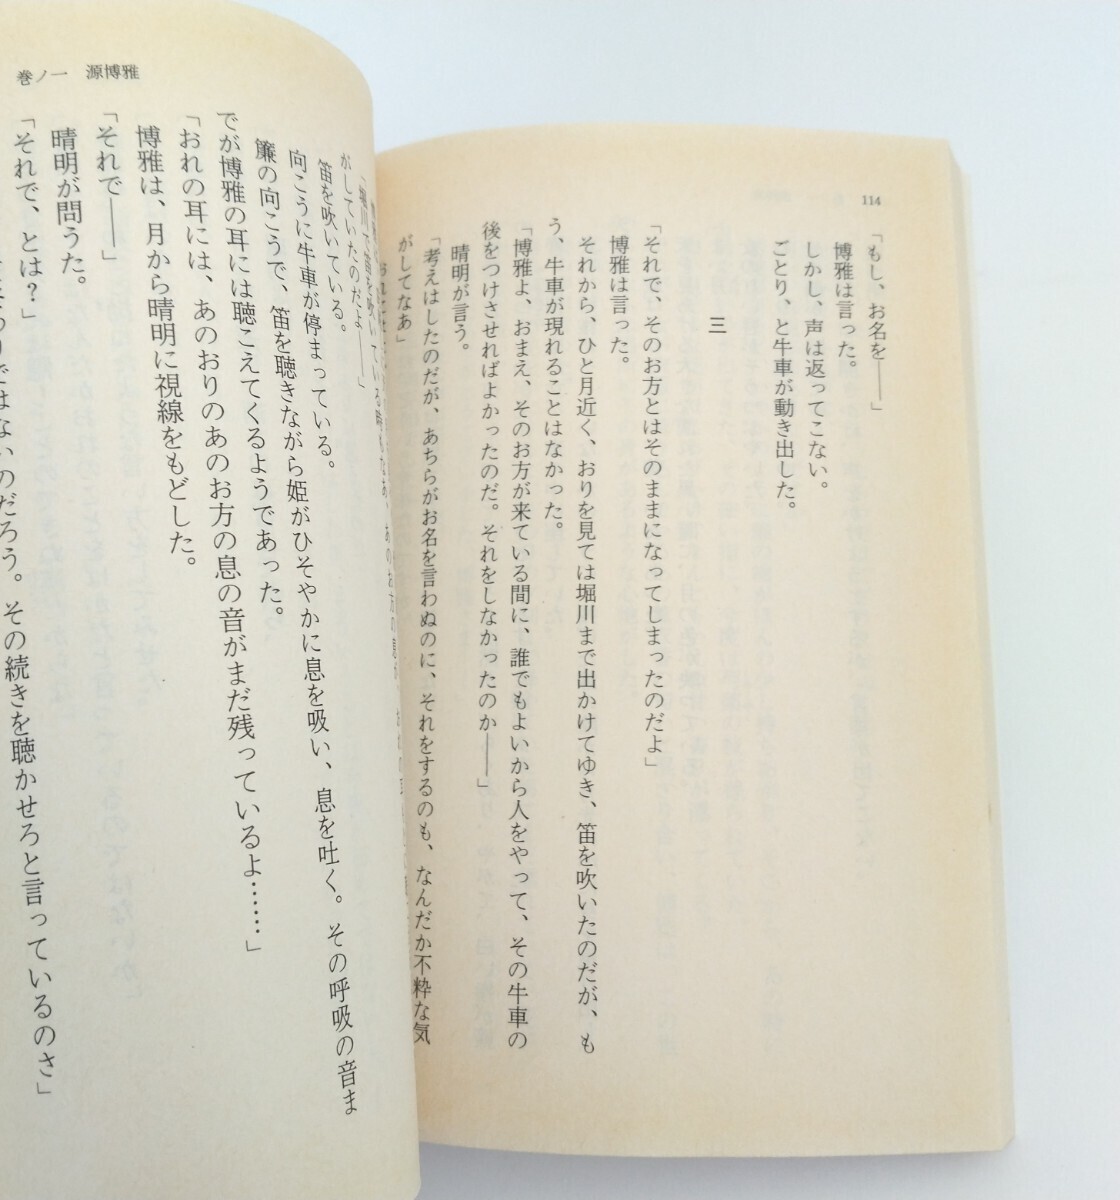 114
「もし、お名を――」
博雅は言った。
しかし、声は返ってこない。
ごとり、と牛車が動き出した。
三
「それで、そのお方とはそのままになってしまったのだよ」
博雅は言った。
それから、ひと月近く、おりを見ては堀川まで出かけてゆき、笛を吹いたのだが、も
う、牛車が現れることはなかった。
「博雅よ、おまえ、そのお方が来ている間に、誰でもよいから人をやって、その牛車の
後をつけさせればよかったのだ。それをしなかったのか――」
晴明が言う。
「考えはしたのだが、あちらがお名を言わぬのに、それをするのも、なんだか不粋な気
がしてなあ」
巻ノ一 源博雅
「堀川で笛を吹いている時もなあ、あのお方の息が
がしていたのだよ――」
笛を吹いている。
向こうに牛車が停まっている。
簾の向こうで、笛を聴きながら姫がひそやかに息を吸い、息を吐く。その呼吸の音ま
でが博雅の耳には聴こえてくるようであった。
「おれの耳には、あのおりのあのお方の息の音がまだ残っているよ……」
博雅は、月から晴明に視線をもどした。
「それで――」
晴明が問うた。
「それで、とは？」
わりではないのだろう。その続きを聴かせろと言っているのさ」